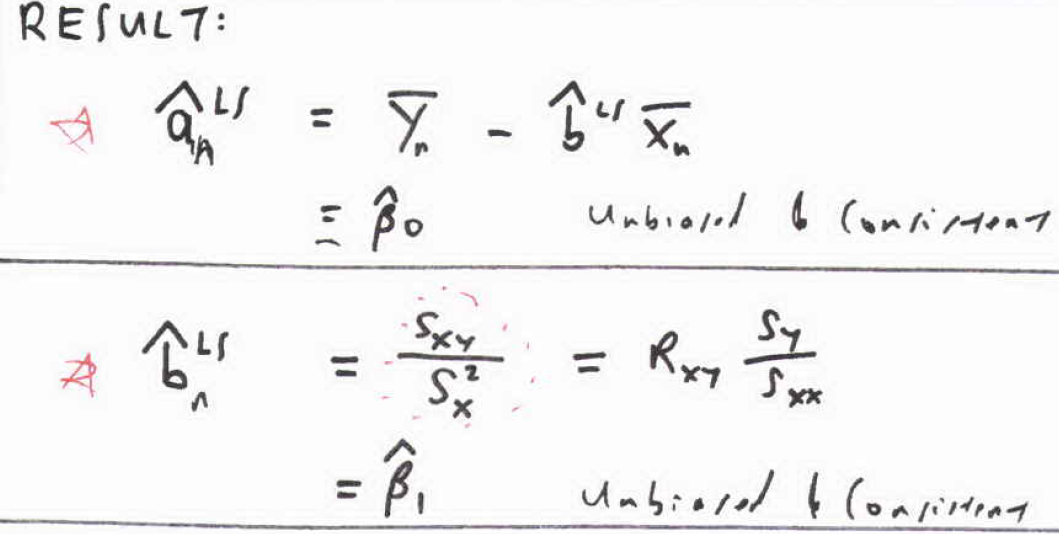 RESULT:
â_n^LS = Y̅_n - b̂^LS X̅_n
= β̂0 Unbiased & Consistent
b̂_n^LS = S_XY / S_X^2 = R_XY S_Y / S_XX
= β̂_1 Unbiased & Consistent